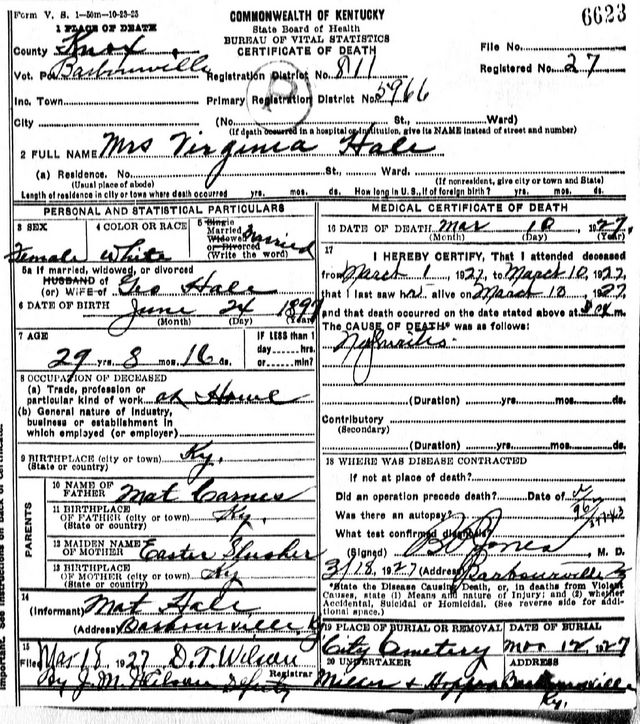 Form V. S. 1-50m-10-23-25
COMMONWEALTH OF KENTUCKY
6623
1 PLACE OF DEATH
State Board of Health
BUREAU OF VITAL STATISTICS
CERTIFICATE OF DEATH
County Knox
File No.
Vot. Pct Barbourville
Registration District No. 811
Registered No. 27
Inc. Town
Primary Registration District No. 5966
City (No. St., Ward)
(If death occurred in a hospital or institution, give its NAME instead of street and number)
2 FULL NAME Mrs Virginia Hale
(a) Residence. No. St., Ward.
(Usual place of abode) (If nonresident, give city or town and State)
Length of residence in city or town where death occurred yrs. mos. ds. How long in U. S., if of foreign birth? yrs. mos. ds.
PERSONAL AND STATISTICAL PARTICULARS
3 SEX
Female
4 COLOR OR RACE
White
5 Single
Married
Widowed
or Divorced
(Write the word)
Married
5a If married, widowed, or divorced
HUSBAND of
(or) WIFE of Geo Hale
6 DATE OF BIRTH June 24
(Month) (Day) (Year)
7 AGE
29 yrs. 8 mos. 16 ds.
IF LESS than 1
day hrs.
or min?
8 OCCUPATION OF DECEASED
(a) Trade, profession or
particular kind of work at Home
(b) General nature of industry,
business or establishment in
which employed (or employer)
9 BIRTHPLACE (city or town) Ky.
(State or country)
PARENTS
10 NAME OF
FATHER Mat Carnes
11 BIRTHPLACE
OF FATHER (city or town) Ky.
(State or country)
12 MAIDEN NAME
OF MOTHER Easter Slusher
13 BIRTHPLACE
OF MOTHER (city or town) Ky
(State or country)
14
(Informant) Mat Hale
(Address) Barbourville, Ky
15
Filed Mar 18 1927 D. T. Wilson
Registrar
By J. M. Wilson Deputy
MEDICAL CERTIFICATE OF DEATH
16 DATE OF DEATH Mar 10, 1927
(Month) (Day) (Year)
17
I HEREBY CERTIFY, That I attended deceased
from March 1, 1927, to March 10, 1927,
that I last saw her alive on March 10, 1927
and that death occurred on the date stated above at m.
The CAUSE OF DEATH* was as follows:
(Duration) yrs. mos. ds.
Contributory
(Secondary)
(Duration) yrs. mos. ds.
18 WHERE WAS DISEASE CONTRACTED
If not at place of death?
Did an operation precede death? Date of
Was there an autopsy?
What test confirmed diagnosis?
(Signed) Jones M. D.
3/18, 1927 (Address) Barbourville Ky
*State the Disease Causing Death, or, in deaths from Violent
Causes, state (1) Means and nature of Injury; and (2) whether
Accidental, Suicidal or Homicidal. (See reverse side for addi-
tional space.)
19 PLACE OF BURIAL OR REMOVAL
City Cemetery
DATE OF BURIAL
12 1927
20 UNDERTAKER
Miller & Hopper
ADDRESS
Barbourville
Ky.